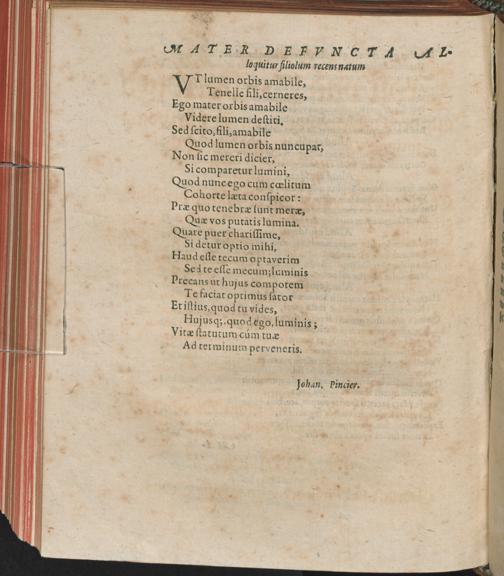 MATER DEFVNCTA AL-
loquitur filiolum recens natum
VT lumen orbis amabile,
Tenelle fili, cerneres,
Ego mater orbis amabile
Videre lumen destiti.
Sed scito, fili, amabile
Quod lumen orbis nuncupat,
Non sic mereri dicier,
Si comparetur lumini,
Quod nunc ego cum cœlitum
Cohorte læta conspicor:
Præ quo tenebræ sunt meræ,
Quæ vos putatis lumina.
Quare puer charissime,
Si detur optio mihi,
Haud esse tecum optaverim
Sed te esse mecum; luminis
Precans ut hujus compotem
Te faciat optimus sator
Et istius, quod tu vides,
Hujusq;, quod ego, luminis;
Vitæ statutum cùm tuæ
Ad terminum perveneris.
Johan. Pincier.